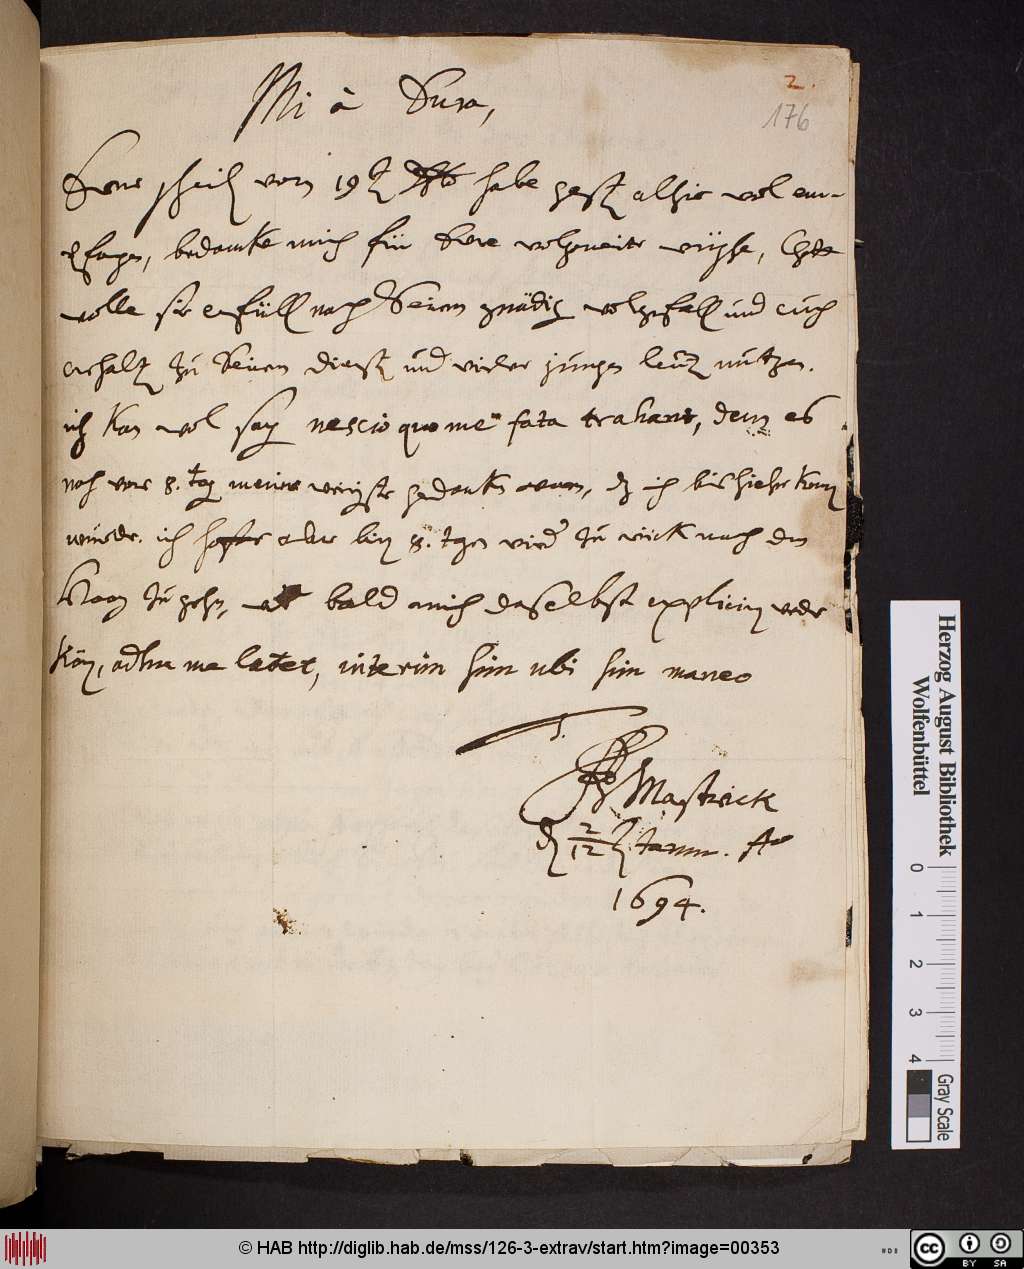 2.
176
Mi à Sura,
Eure schreib vom 19t Xbr habe gestr alhie wol em-
pfangen, bedancke mich für Eure wolgemeinte wünsche, Gott
wolle sie erfülln nach Seinem gnädign wolgefalln und euch
erhaltn zu Seinem dienst und vieler jungen leute nutzen.
ich kan wol sagn nescio quo me fata trahant, denn es
noch vor 8. tagn meine wenigste gedancken waren, dz ich bis hieher komn
würde. ich hoffe aber binn 8. tagen wieder zu rück nach dem
Haag zu gehn, bald mich daselbst
könn, adhuc me latet, interim sum ubi sum maneo
T.
Mastrick
d 2/12 t Janu. Ao
1694.
Herzog August Bibliothek
Wolfenbüttel
0 1 2 3 4
Gray Scale
© HAB http://diglib.hab.de/mss/126-3-extrav/start.htm?image=00353
cc BY SA